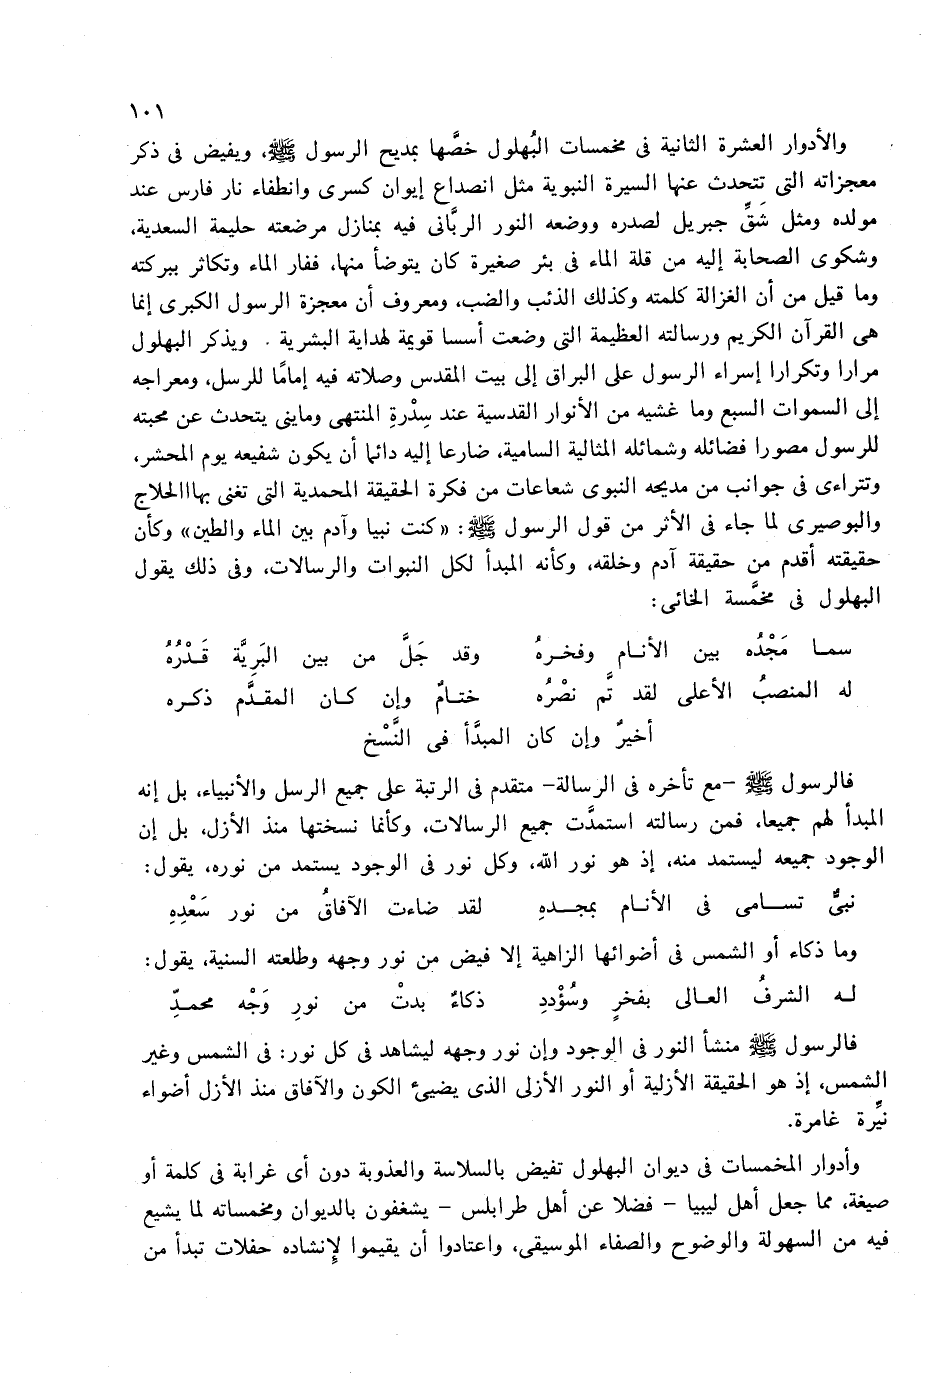 ١٠١
والأدوار العشرة الثانية فى مخمسات البُهلول خصَّها بمديح الرسول ﷺ، ويفيض فى ذكر
معجزاته التى تتحدث عنها السيرة النبوية مثل انصداع إيوان كسرى وانطفاء نار فارس عند
مولده ومثل شَقِّ جبريل لصدره ووضعه النور الربَّانى فيه بمنازل مرضعته حليمة السعدية،
وشكوى الصحابة إليه من قلة الماء فى بئر صغيرة كان يتوضأ منها، ففار الماء وتكاثر ببركته
وما قيل من أن الغزالة كلمته وكذلك الذئب والضب، ومعروف أن معجزة الرسول الكبرى إنما
هى القرآن الكريم ورسالته العظيمة التى وضعت أسسا قويمة لهداية البشرية . ويذكر البهلول
مرارا وتكرارا إسراء الرسول على البراق إلى بيت المقدس وصلاته فيه إمامًا للرسل، ومعراجه
إلى السموات السبع وما غشيه من الأنوار القدسية عند سِدْرةِ المنتهى ومايني يتحدث عن محبته
للرسول مصورا فضائله وشمائله المثالية السامية، ضارعا إليه دائما أن يكون شفيعه يوم المحشر،
وتتراءى فى جوانب من مديحه النبوى شعاعات من فكرة الحقيقة المحمدية التى تغنى بهااالحلاج
والبوصيرى لما جاء فى الأثر من قول الرسول ﷺ: «كنت نبيا وآدم بين الماء والطين» وكأن
حقيقته أقدم من حقيقة آدم وخلقه، وكأنه المبدأ لكل النبوات والرسالات، وفى ذلك يقول
البهلول فى مخمَّسة الخائى:
سمـا مَجْدُه بين الأنـام وفخـرهُ وقد جَلَّ من بين البَرِيَّة قَـدْرُهُ
له المنصبُ الأعلى لقد تَّم نصْرُه ختـامٌ وإن كـان المقدَّم ذكـره
أخيرٌ وإن كان المبدَّأ فى النَّسْخ
فالرسول ﷺ -مع تأخره فى الرسالة- متقدم فى الرتبة على جميع الرسل والأنبياء، بل إنه
المبدأ لهم جميعا، فمن رسالته استمدَّت جميع الرسالات، وكأنما نسختها منذ الأزل، بل إن
الوجود جميعه ليستمد منه، إذ هو نور الله، وكل نور فى الوجود يستمد من نوره، يقول:
نبىٌّ تســامى فى الأنـام بمجـدهِ لقد ضاءت الآفاقُ من نور سَعْدِهِ
وما ذكاء أو الشمس فى أضوائها الزاهية إلا فيض من نور وجهه وطلعته السنية، يقول:
لـه الشرفُ العـالى بفخرٍ وسُؤْددِ ذكاءٌ بدتْ من نورِ وَجْه محمـدِّ
فالرسول ﷺ منشأ النور فى الوجود وإن نور وجهه ليشاهد فى كل نور: فى الشمس وغير
الشمس، إذ هو الحقيقة الأزلية أو النور الأزلى الذى يضيئ الكون والآفاق منذ الأزل أضواء
نيِّرة غامرة.
وأدوار المخمسات فى ديوان البهلول تفيض بالسلاسة والعذوبة دون أى غرابة فى كلمة أو
صيغة، مما جعل أهل ليبيا - فضلا عن أهل طرابلس - يشغفون بالديوان ومخمساته لما يشيع
فيه من السهولة والوضوح والصفاء الموسيقى، واعتادوا أن يقيموا لإنشاده حفلات تبدأ من